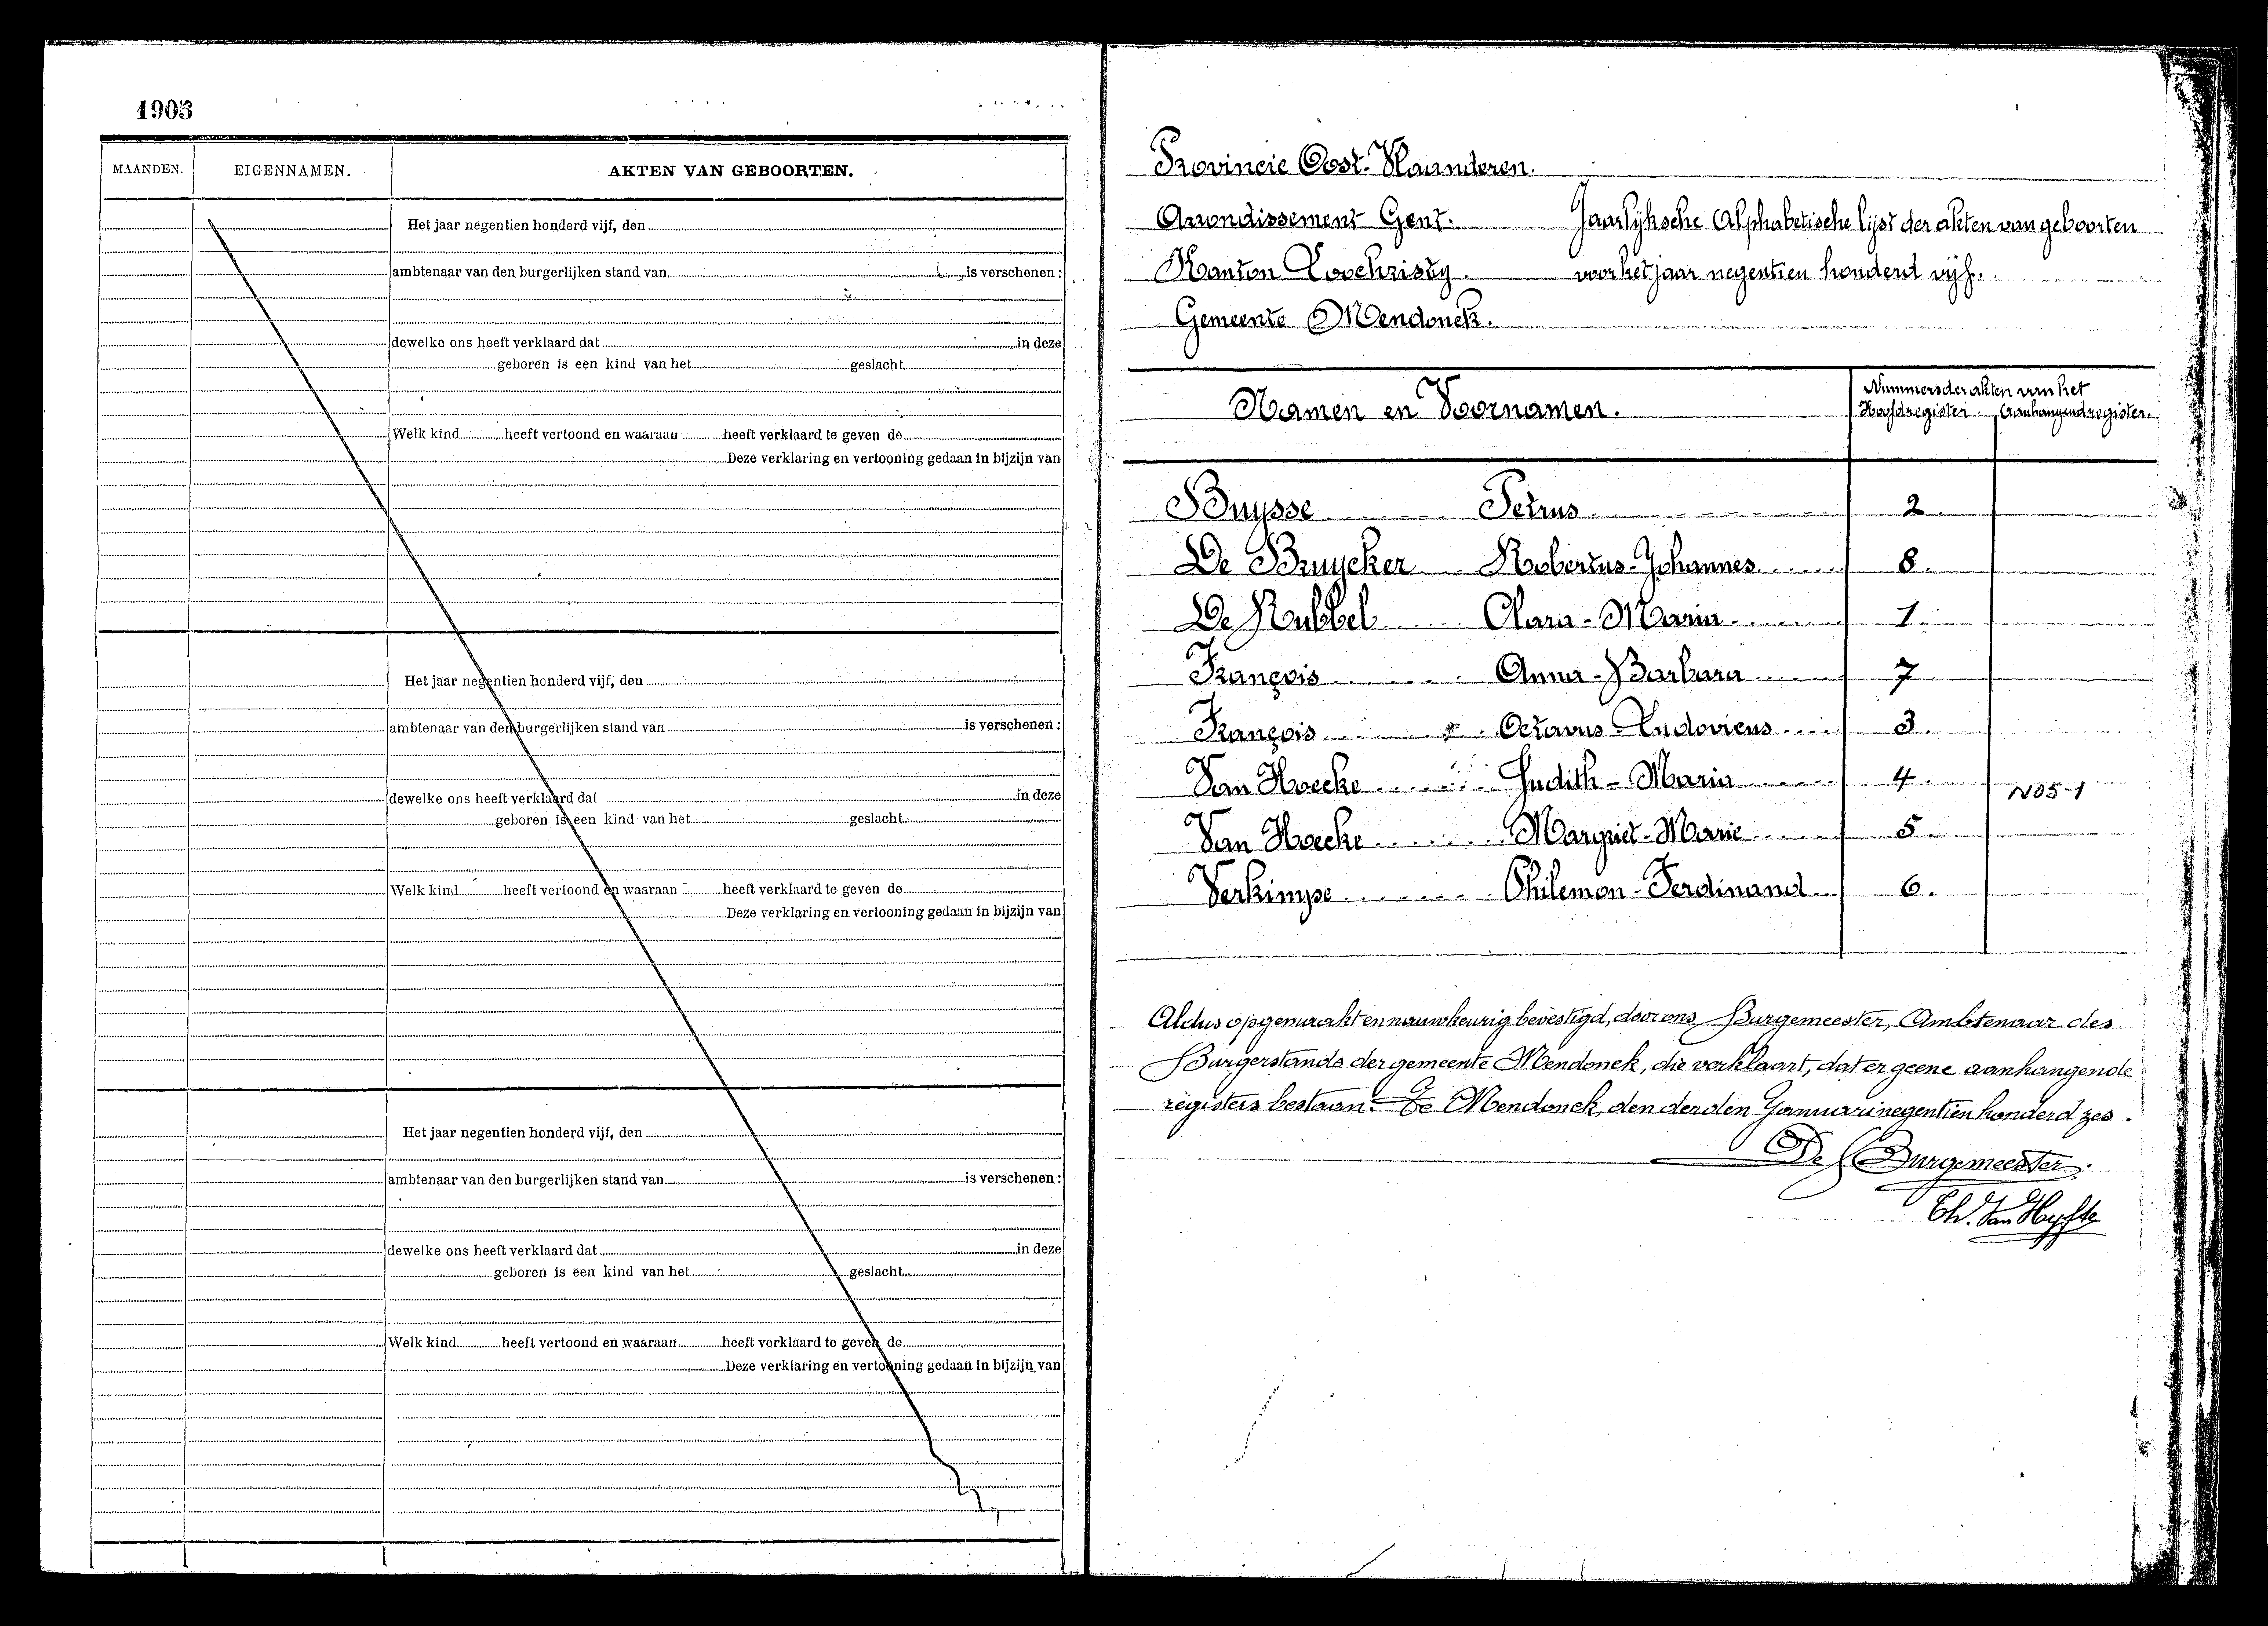 1905
MAANDEN. EIGENNAMEN. AKTEN VAN GEBOORTEN.
Het jaar negentien honderd vijf, den
ambtenaar van den burgerlijken stand van is verschenen :
dewelke ons heeft verklaard dat in deze
geboren is een kind van het geslacht
Welk kind heeft vertoond en waaraan heeft verklaard te geven de
Deze verklaring en vertooning gedaan in bijzijn van
Het jaar negentien honderd vijf, den
ambtenaar van den burgerlijken stand van is verschenen :
dewelke ons heeft verklaard dat in deze
geboren is een kind van het geslacht
Welk kind heeft vertoond en waaraan heeft verklaard te geven de
Deze verklaring en vertooning gedaan in bijzijn van
Het jaar negentien honderd vijf, den
ambtenaar van den burgerlijken stand van is verschenen :
dewelke ons heeft verklaard dat in deze
geboren is een kind van het geslacht
Welk kind heeft vertoond en waaraan heeft verklaard te geven de
Deze verklaring en vertooning gedaan in bijzijn van
Provincie Oost-Vlaanderen.
Arrondissement Gent. Jaarlyksche Alphabetische lyst der akten van geboorten
Kanton Loochristy. voor het jaar negentien honderd vijf.
Gemeente Mendonck.
Namen en Voornamen. Nummers der akten van het
Hoofdregister Aanhangend register.
Buysse Petrus 2.
De Bruycker Robertus-Johannes 8.
De Rubbel Clara-Maria 1.
François Anna-Barbara 7
François Octavus-Ludovicus 3.
Van Hoecke Judith-Maria 4.
N05-1
Van Hoecke Margriet-Marie 5.
Verkimpe Philemon-Ferdinand 6.
Aldus opgemaakt en nauwkeurig bevestigd, door ons Burgemeester, Ambtenaar des
Burgerstands der gemeente Mendonck, die verklaart, dat er geene aanhangende
registers bestaan. Te Mendonck, den derden Januari negentien honderd zes.
De Burgemeester.
Ch. Van Hyfte